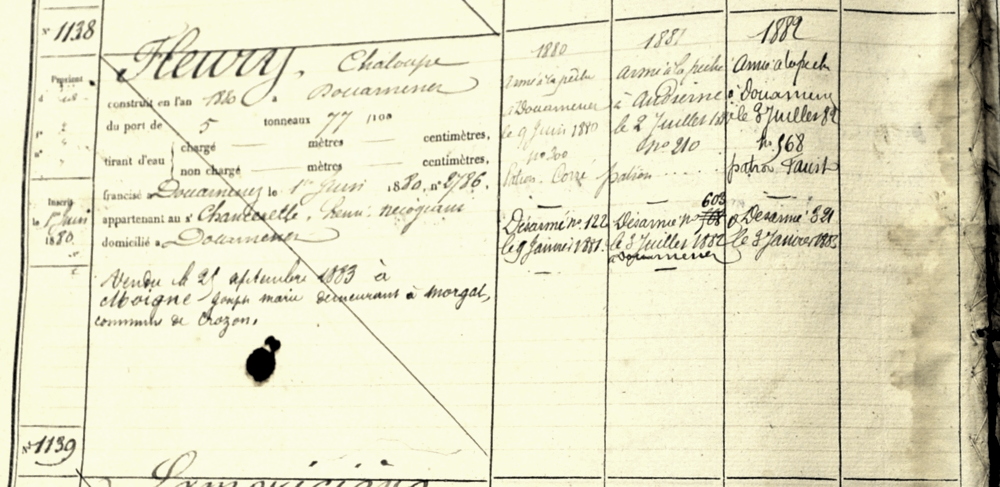 N° 1138
Fleury, Chaloupe
construit en l'an 1880 à Douarnenez
du port de 5 tonneaux 77 /100
chargé mètres centimètres,
tirant d'eau
non chargé mètres centimètres,
francisé à Douarnenez le 1er Juin 1880, n° 2786.
Inscrit
le 1er Juin
1880.
appartenant au sr Chancerelle, Henri négociant
domicilié à Douarnenez
Vendu le 25 septembre 1883 à
Moigne Joseph marie demeurant à morgat,
commune de Crozon.
1880
Armé à la pêche
à Douarnenez
le 9 Juin 1880
n° 200
Patron
Désarmé n° 122
le 9 Janvier 1881.
1881
armé à la pêche
à Audierne
le 2 Juillet
n° 210
patron
603
Désarmé n°
le 3 Juillet 1882
à Douarnenez
1882
Armé à la pêch
à Douarnenez
le 3 Juillet 82
n° 568
patron Faust
Désarmé 391
le 3 Janvier 1883
N° 1139